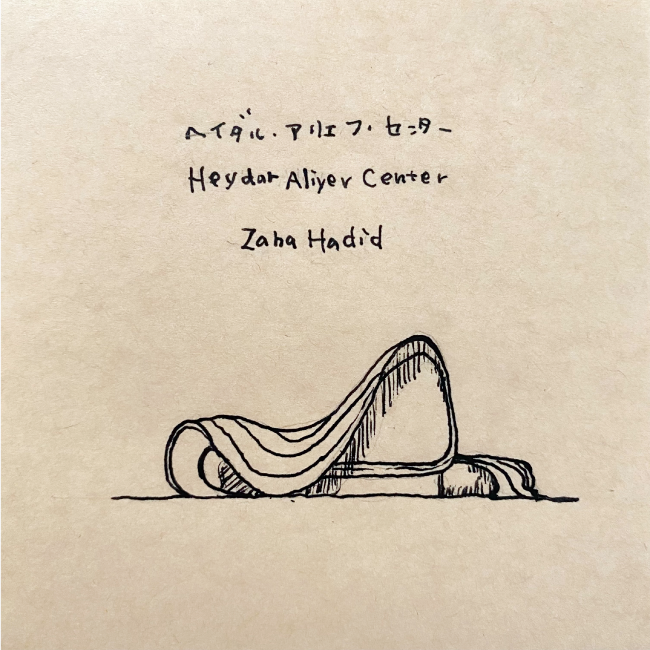 ヘイダル・アリエフ・センター
Heydar Aliyev Center
Zaha Hadid